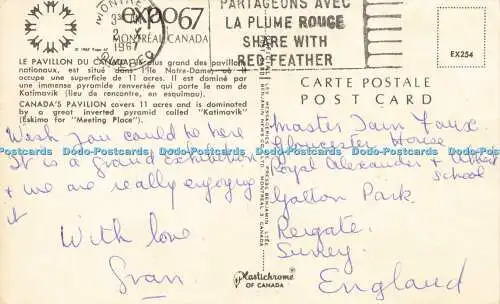 MONTREAL
3
1967
QUEBEC
expo67
MONTRÉAL, CANADA
PARTAGEONS AVEC
LA PLUME ROUGE
SHARE WITH
RED FEATHER
EX254
© 1967 Expo 67
LE PAVILLON DU CANADA plus grand des pavillons
nationaux, est situé dans l'île Notre-Dame, où il
occupe une superficie de 11 acres. Il est dominé par
une immense pyramide renversée qui porte le nom de
Katimavik (lieu de rencontre, en esquimau).
CANADA'S PAVILION covers 11 acres and is dominated
by a great inverted pyramid called "Katimavik"
(Eskimo for "Meeting Place").
CARTE POSTALE
POST CARD
Wish you could be here
It is a grand exhibition
& we are really enjoying
it
With love
Gran.
Master Iain Faux
Gloucester House
Royal Alexander & Albert
School
Gatton Park.
Reigate.
Surrey.
England
BENJAMIN
MONTREAL 3 CANADA
Plastichrome
OF CANADA
Dodo-Postcards Dodo-Postcards Dodo-Postcards Dodo-Postcards Dodo-Postcards Dodo-Postcards